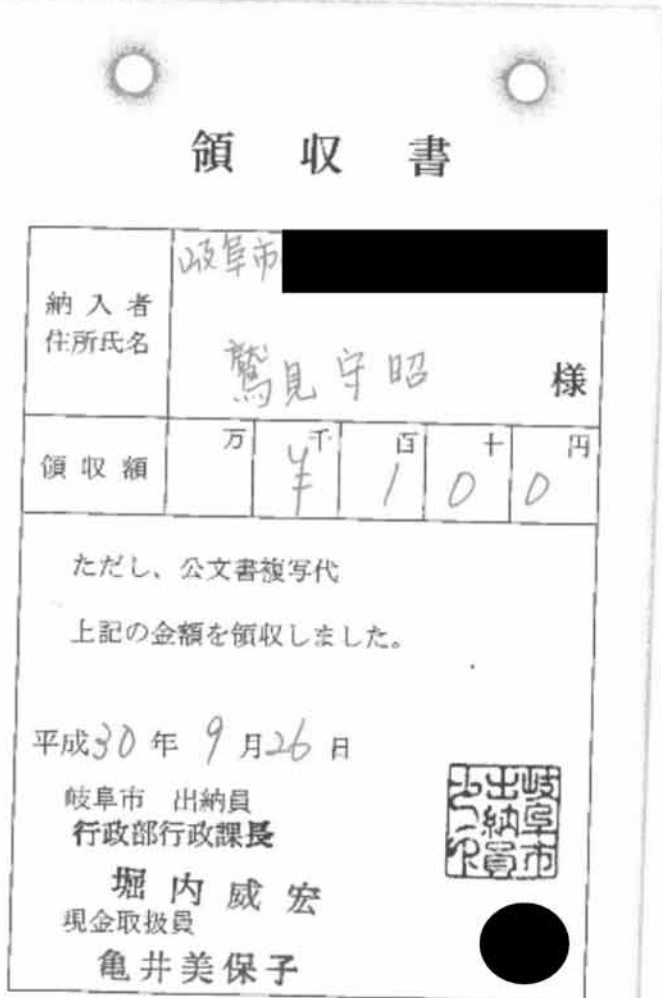 領収書
岐阜市
納入者
住所氏名
鷲見守昭 様
万 千 百 十 円
領収額 ¥ 1 0 0
ただし、公文書複写代
上記の金額を領収しました。
平成30年9月26日
岐阜市 出納員
行政部行政課長
堀内威宏
現金取扱員
亀井美保子
岐阜市
出納員